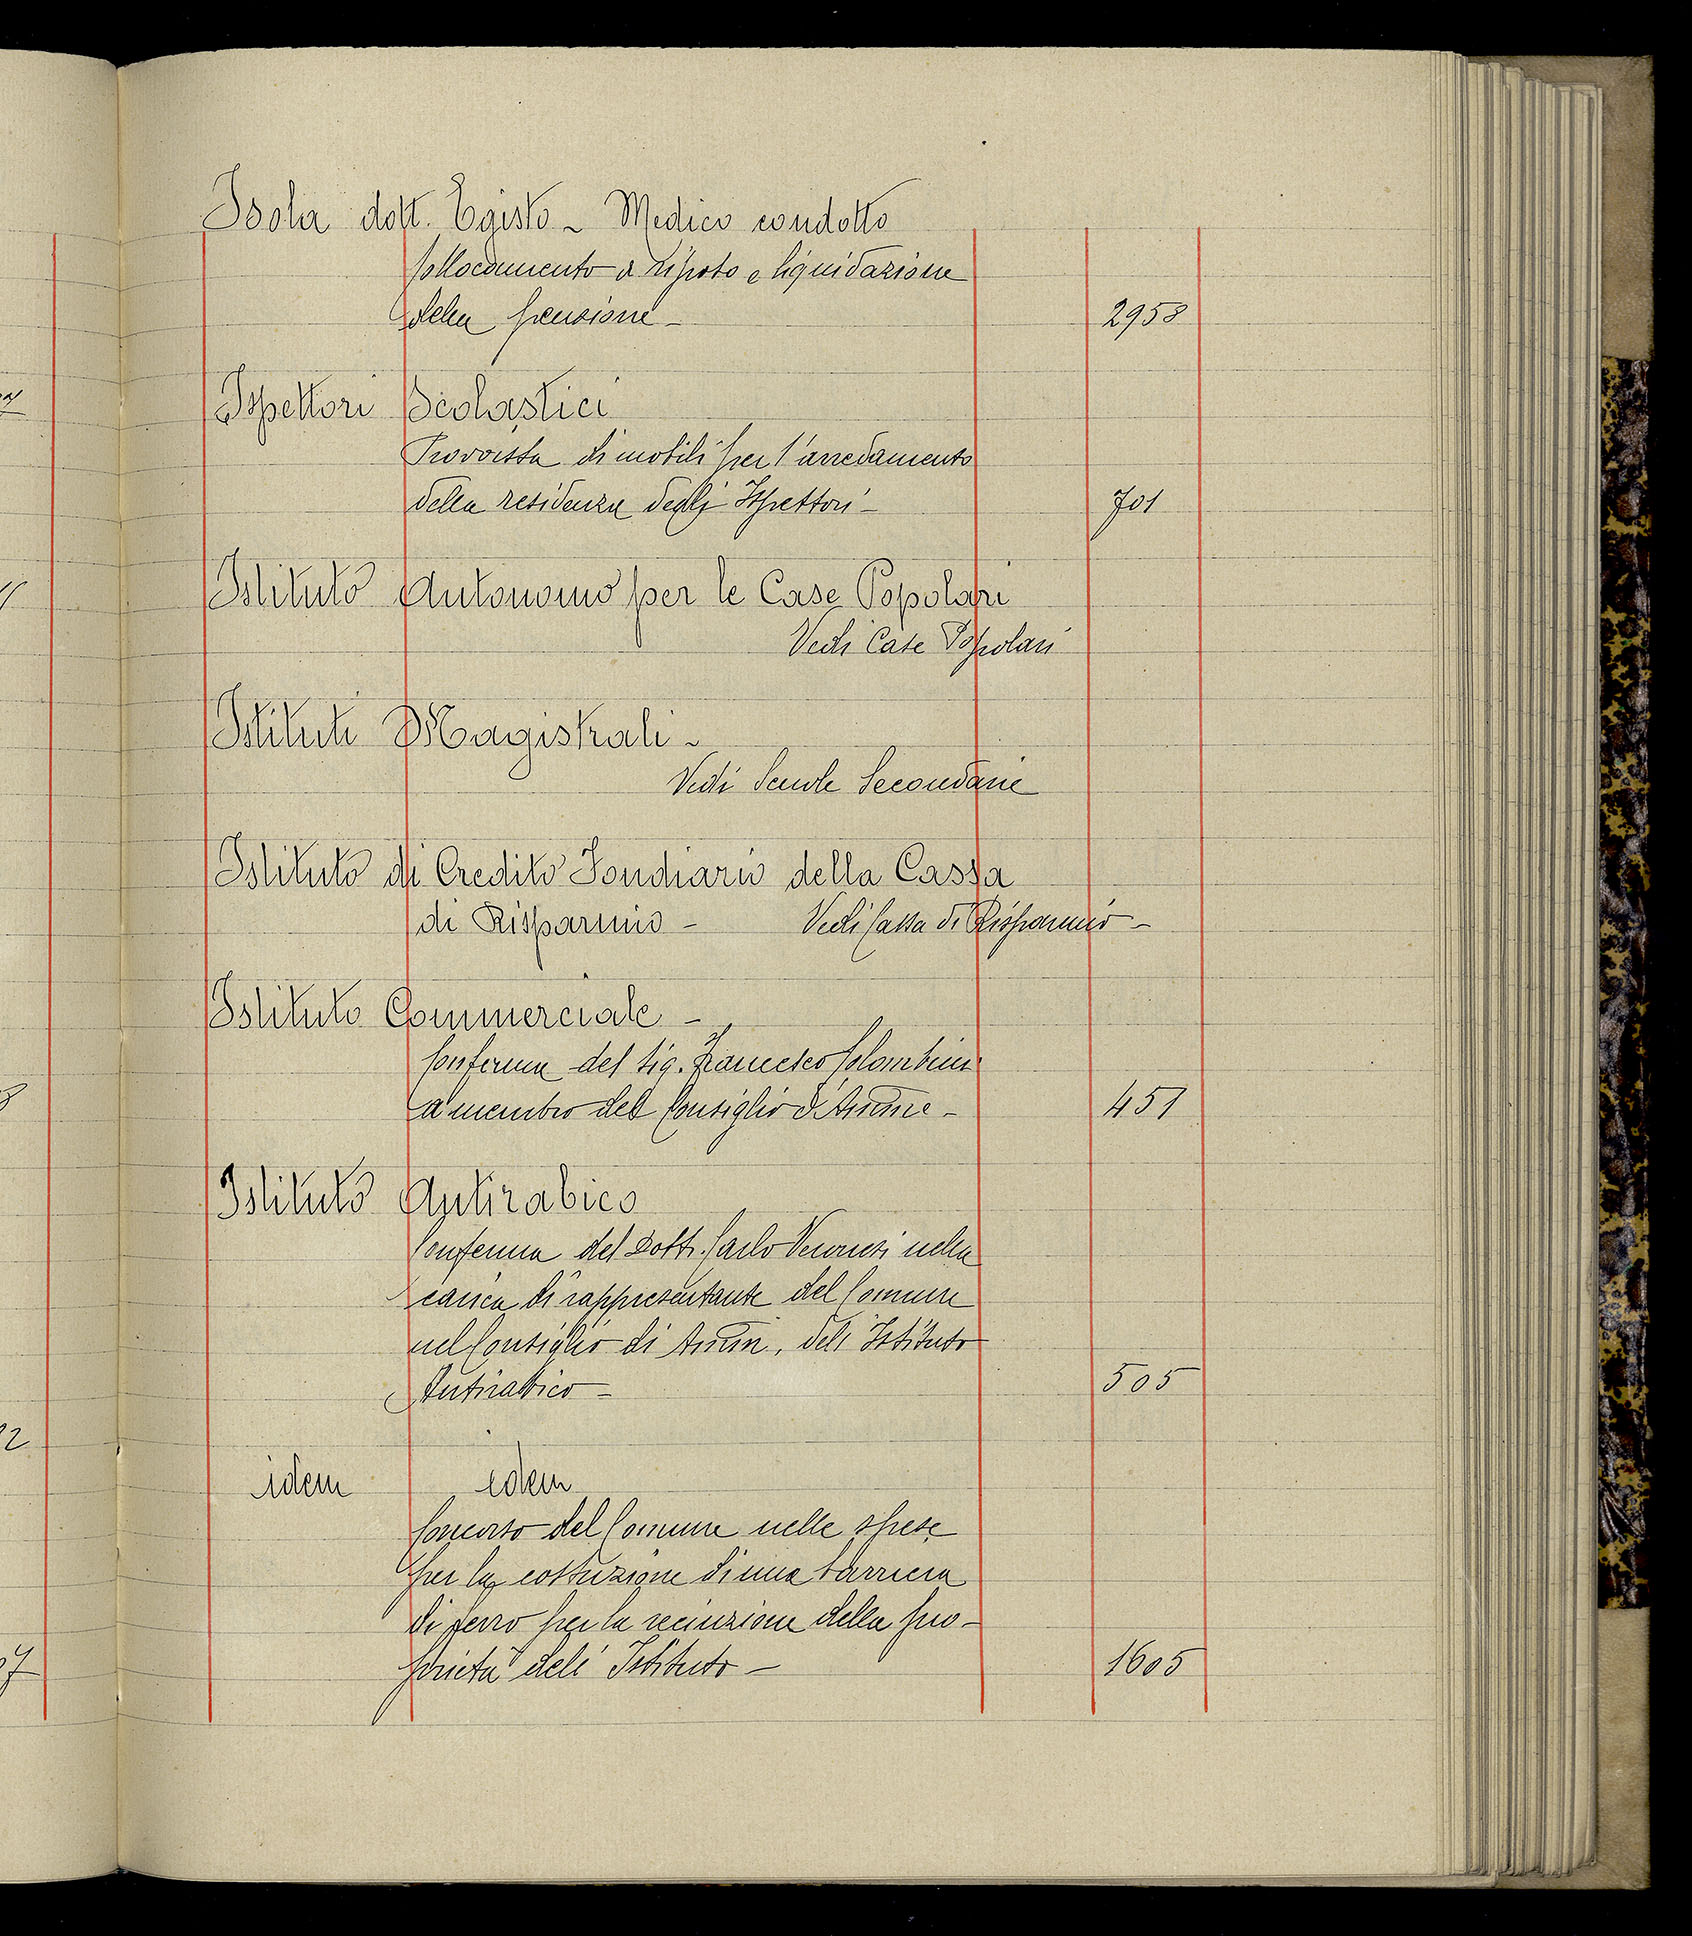 Isola dott. Egisto - Medico condotto
Collocamento a riposo e liquidazione
della pensione - 2958
Ispettori Scolastici
Provvista di mobili per l'arredamento
della residenza degli Ispettori - 701
Istituto Autonomo per le Case Popolari
Vedi Case Popolari
Istituti Magistrali -
Vedi Scuole Secondarie
Istituto di Credito Fondiario della Cassa
di Risparmio - Vedi Cassa di Risparmio -
Istituto Commerciale -
Conferma del Sig. Francesco Colombini
a membro del Consiglio d'Amm.ne - 451
Istituto Antirabico
Conferma del Dott. Carlo Veronesi nella
carica di rappresentante del Comune
nel Consiglio di Amm. dell'Istituto
Antirabbico - 505
idem idem
Concorso del Comune nelle spese
per la costruzione di una barriera
di ferro per la recinzione della pro-
prietà dell'Istituto - 1605